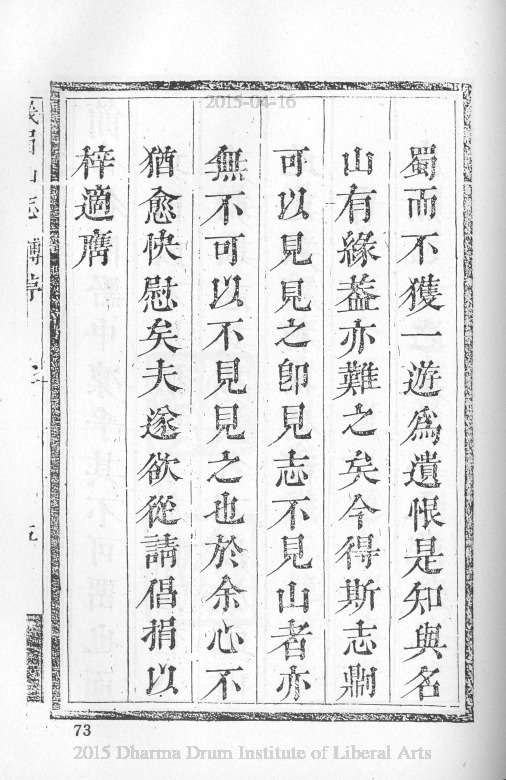 2015-04-16
蜀而不獲一遊為遺恨是知與名
山有緣葢亦難之矣今得斯志剙
可以見見之卽見志不見山者亦
無不可以不見見之也於余心不
猶愈快慰矣夫遂欲從請倡捐以
梓適膺
峨眉山志
73
2015 Dharma Drum Institute of Liberal Arts